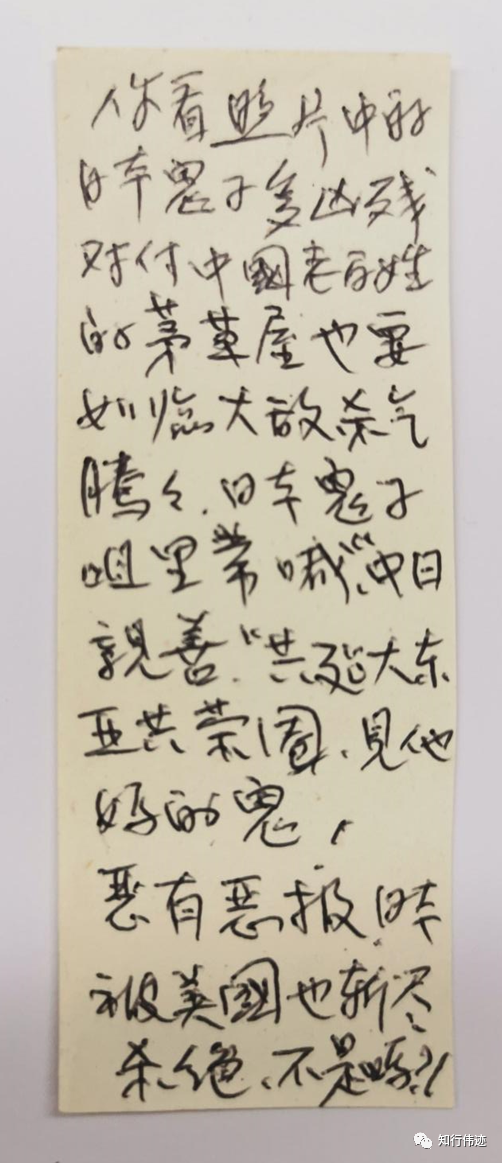 你看照片中的
日本鬼子多凶残
对付中國老百姓
的茅草屋也要
如临大敌杀气
腾々.日本鬼子
咀里常喊“中日
親善”“共建”大东
亚共荣圈、見他
妈的鬼,
恶有恶报.日本
被美國也斩尽
杀绝、不是吗?!
知行伟迹